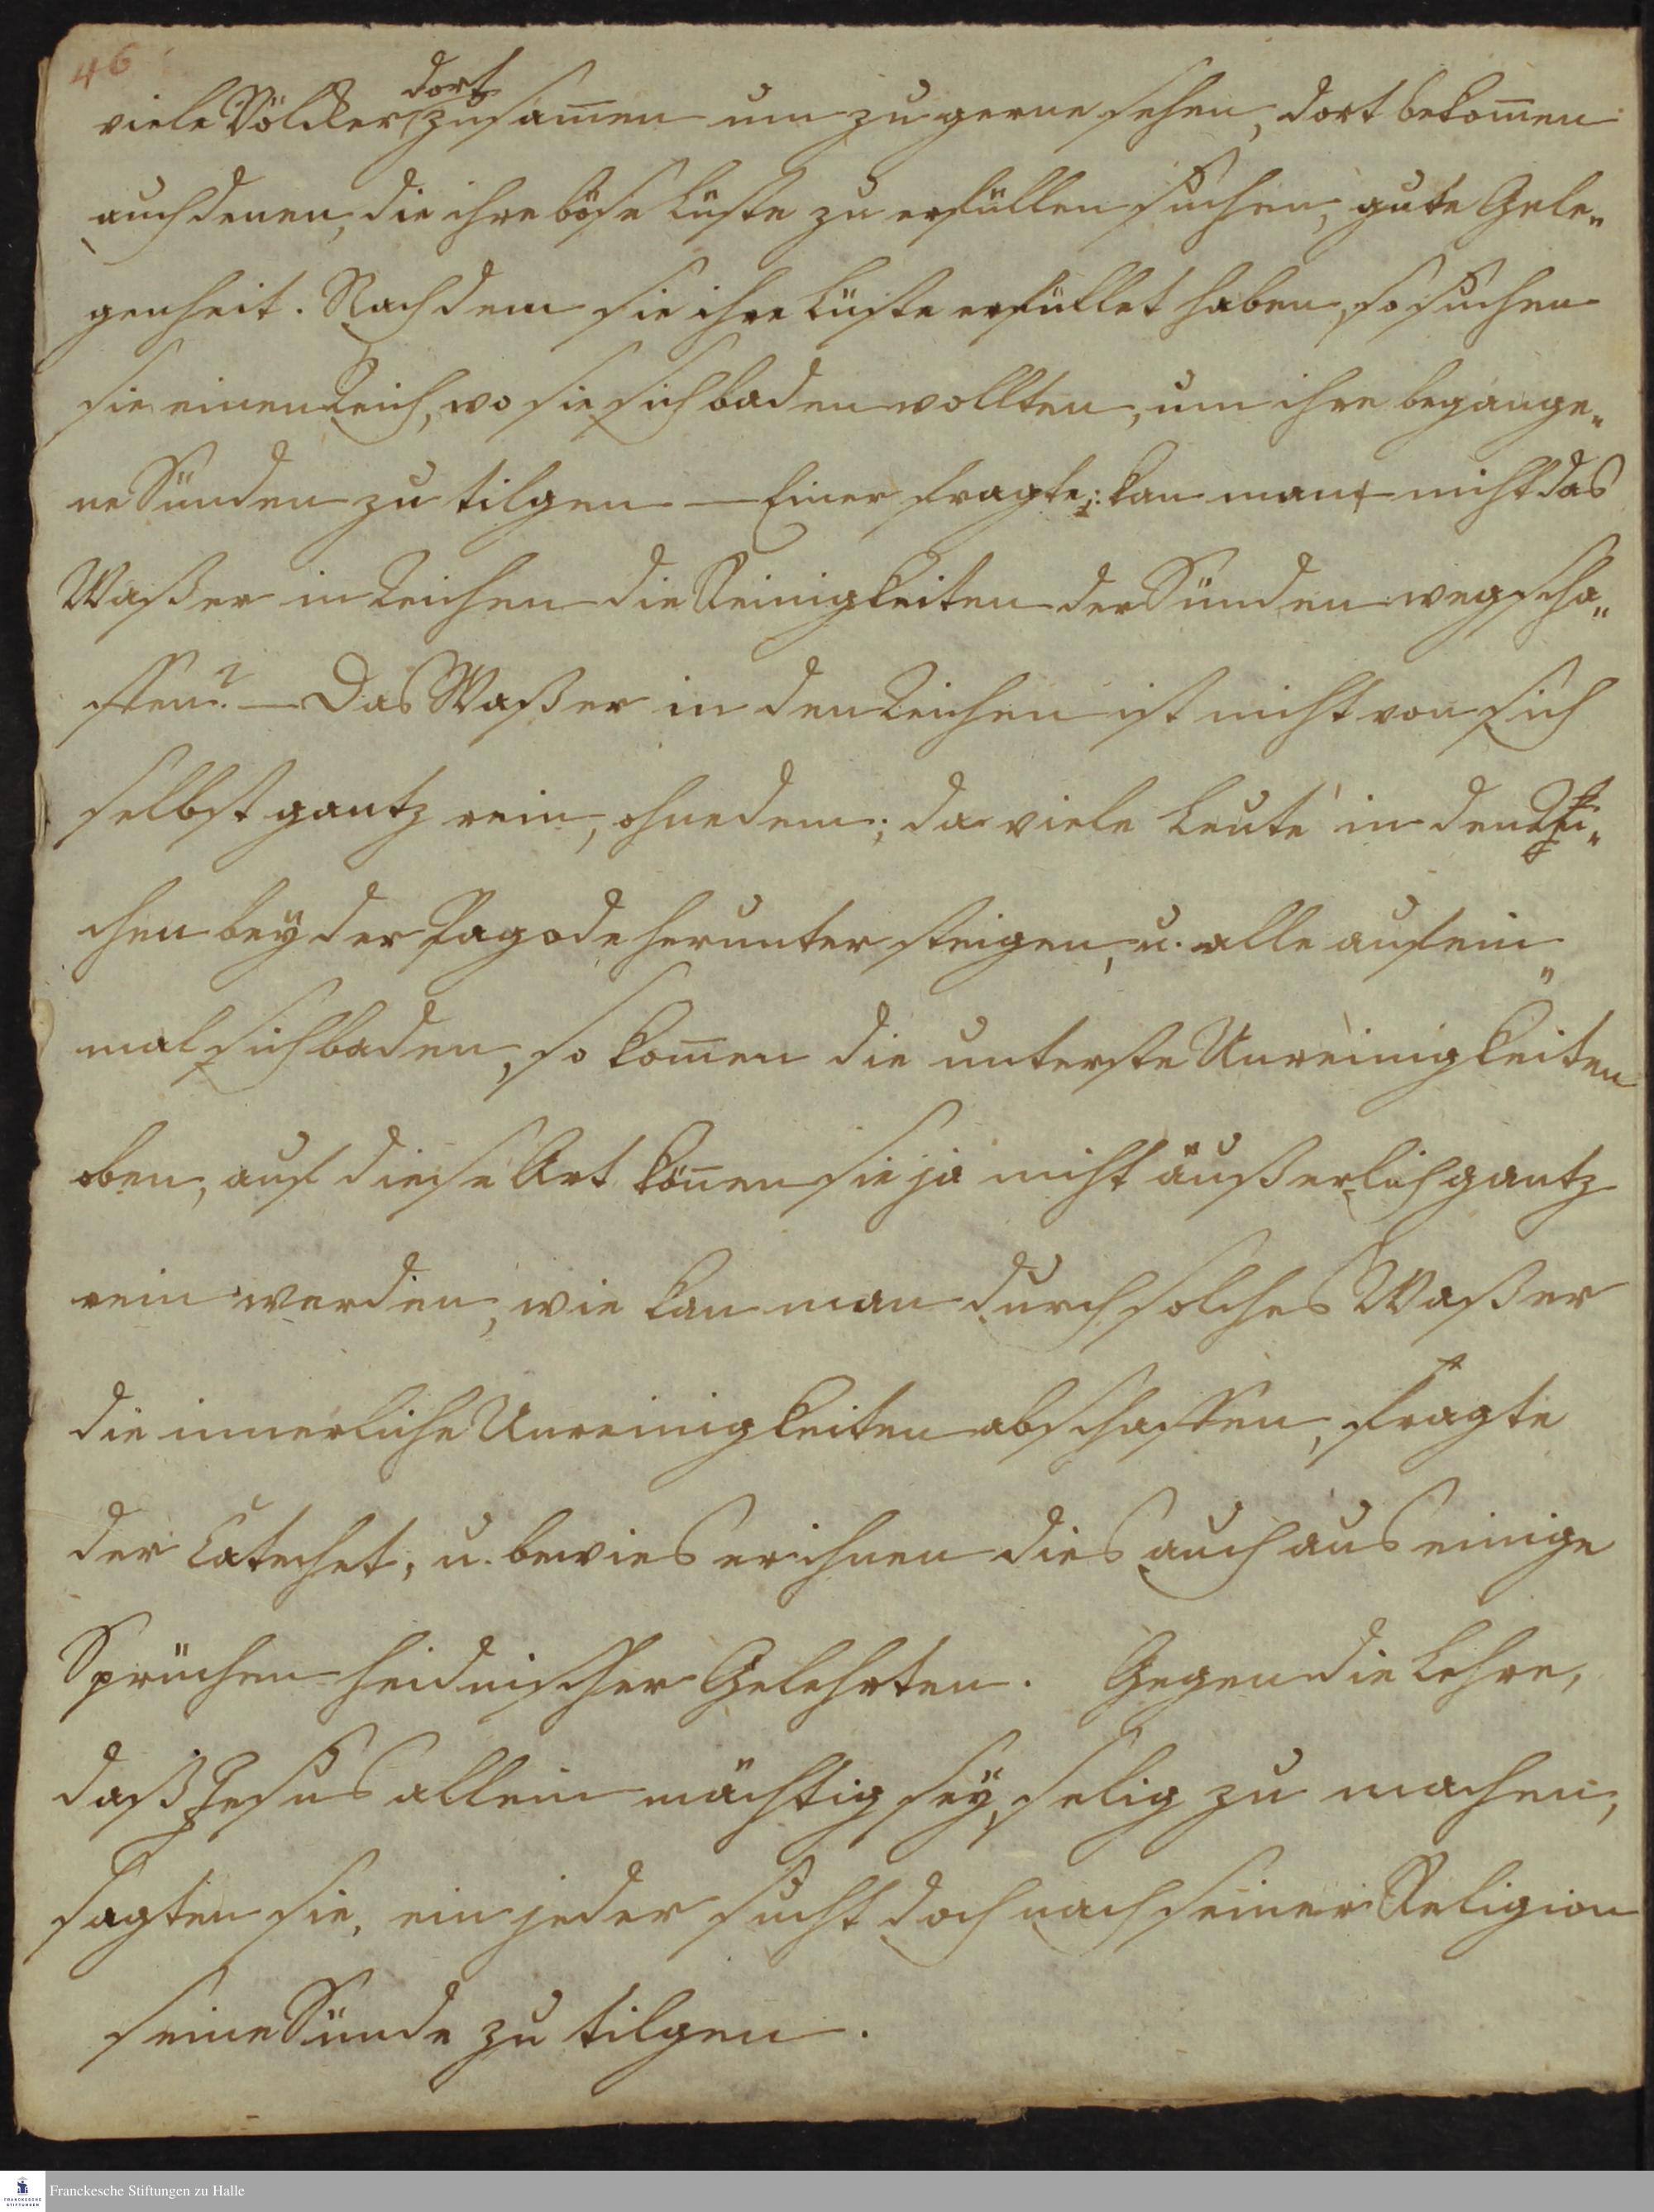 46
dort
viele Völcker zusam̄en um zu gerne sehen, dort bekom̄en
auch denen, die ihre böse Lüste zu erfüllen suchen, gute Gele„
genheit. Nachdem sie ihre Lüste erfüllet haben, so suchen
sie einen Teich, wo sie sich baden wollten, um ihre begange„
ne Sünden zu tilgen — Einer fragte: kan man nicht das
Waßer in Teichen die Reinigkeiten der Sünden wegscha„
ffen? — Das Waßer in den Teichen ist nicht von sich
selbst gantz rein, ohnedem; da viele Leute in den Tei„
chen bey der Pagode herunter steigen, u. alle auf ein„
mal sich baden, so kom̄en die unterste Unreinigkeiten
oben, auf diese Art kön̄en sie ja nicht äußerlich gantz
rein werden, wie kan man durch solches Waßer
die innerliche Unreinigkeiten abschaffen, fragte
der Catechet, u. bewies er ihnen dies auch aus einige
Sprüchen heidnischer Gelehrten. Gegen die Lehre,
daß Jesus allein mächtig sey, selig zu machen,
sagten sie, ein jeder sucht doch nach seiner Religion
seine Sünde zu tilgen.
Franckesche Stiftungen zu Halle
FRANCKESCHE
STIFTUNGEN